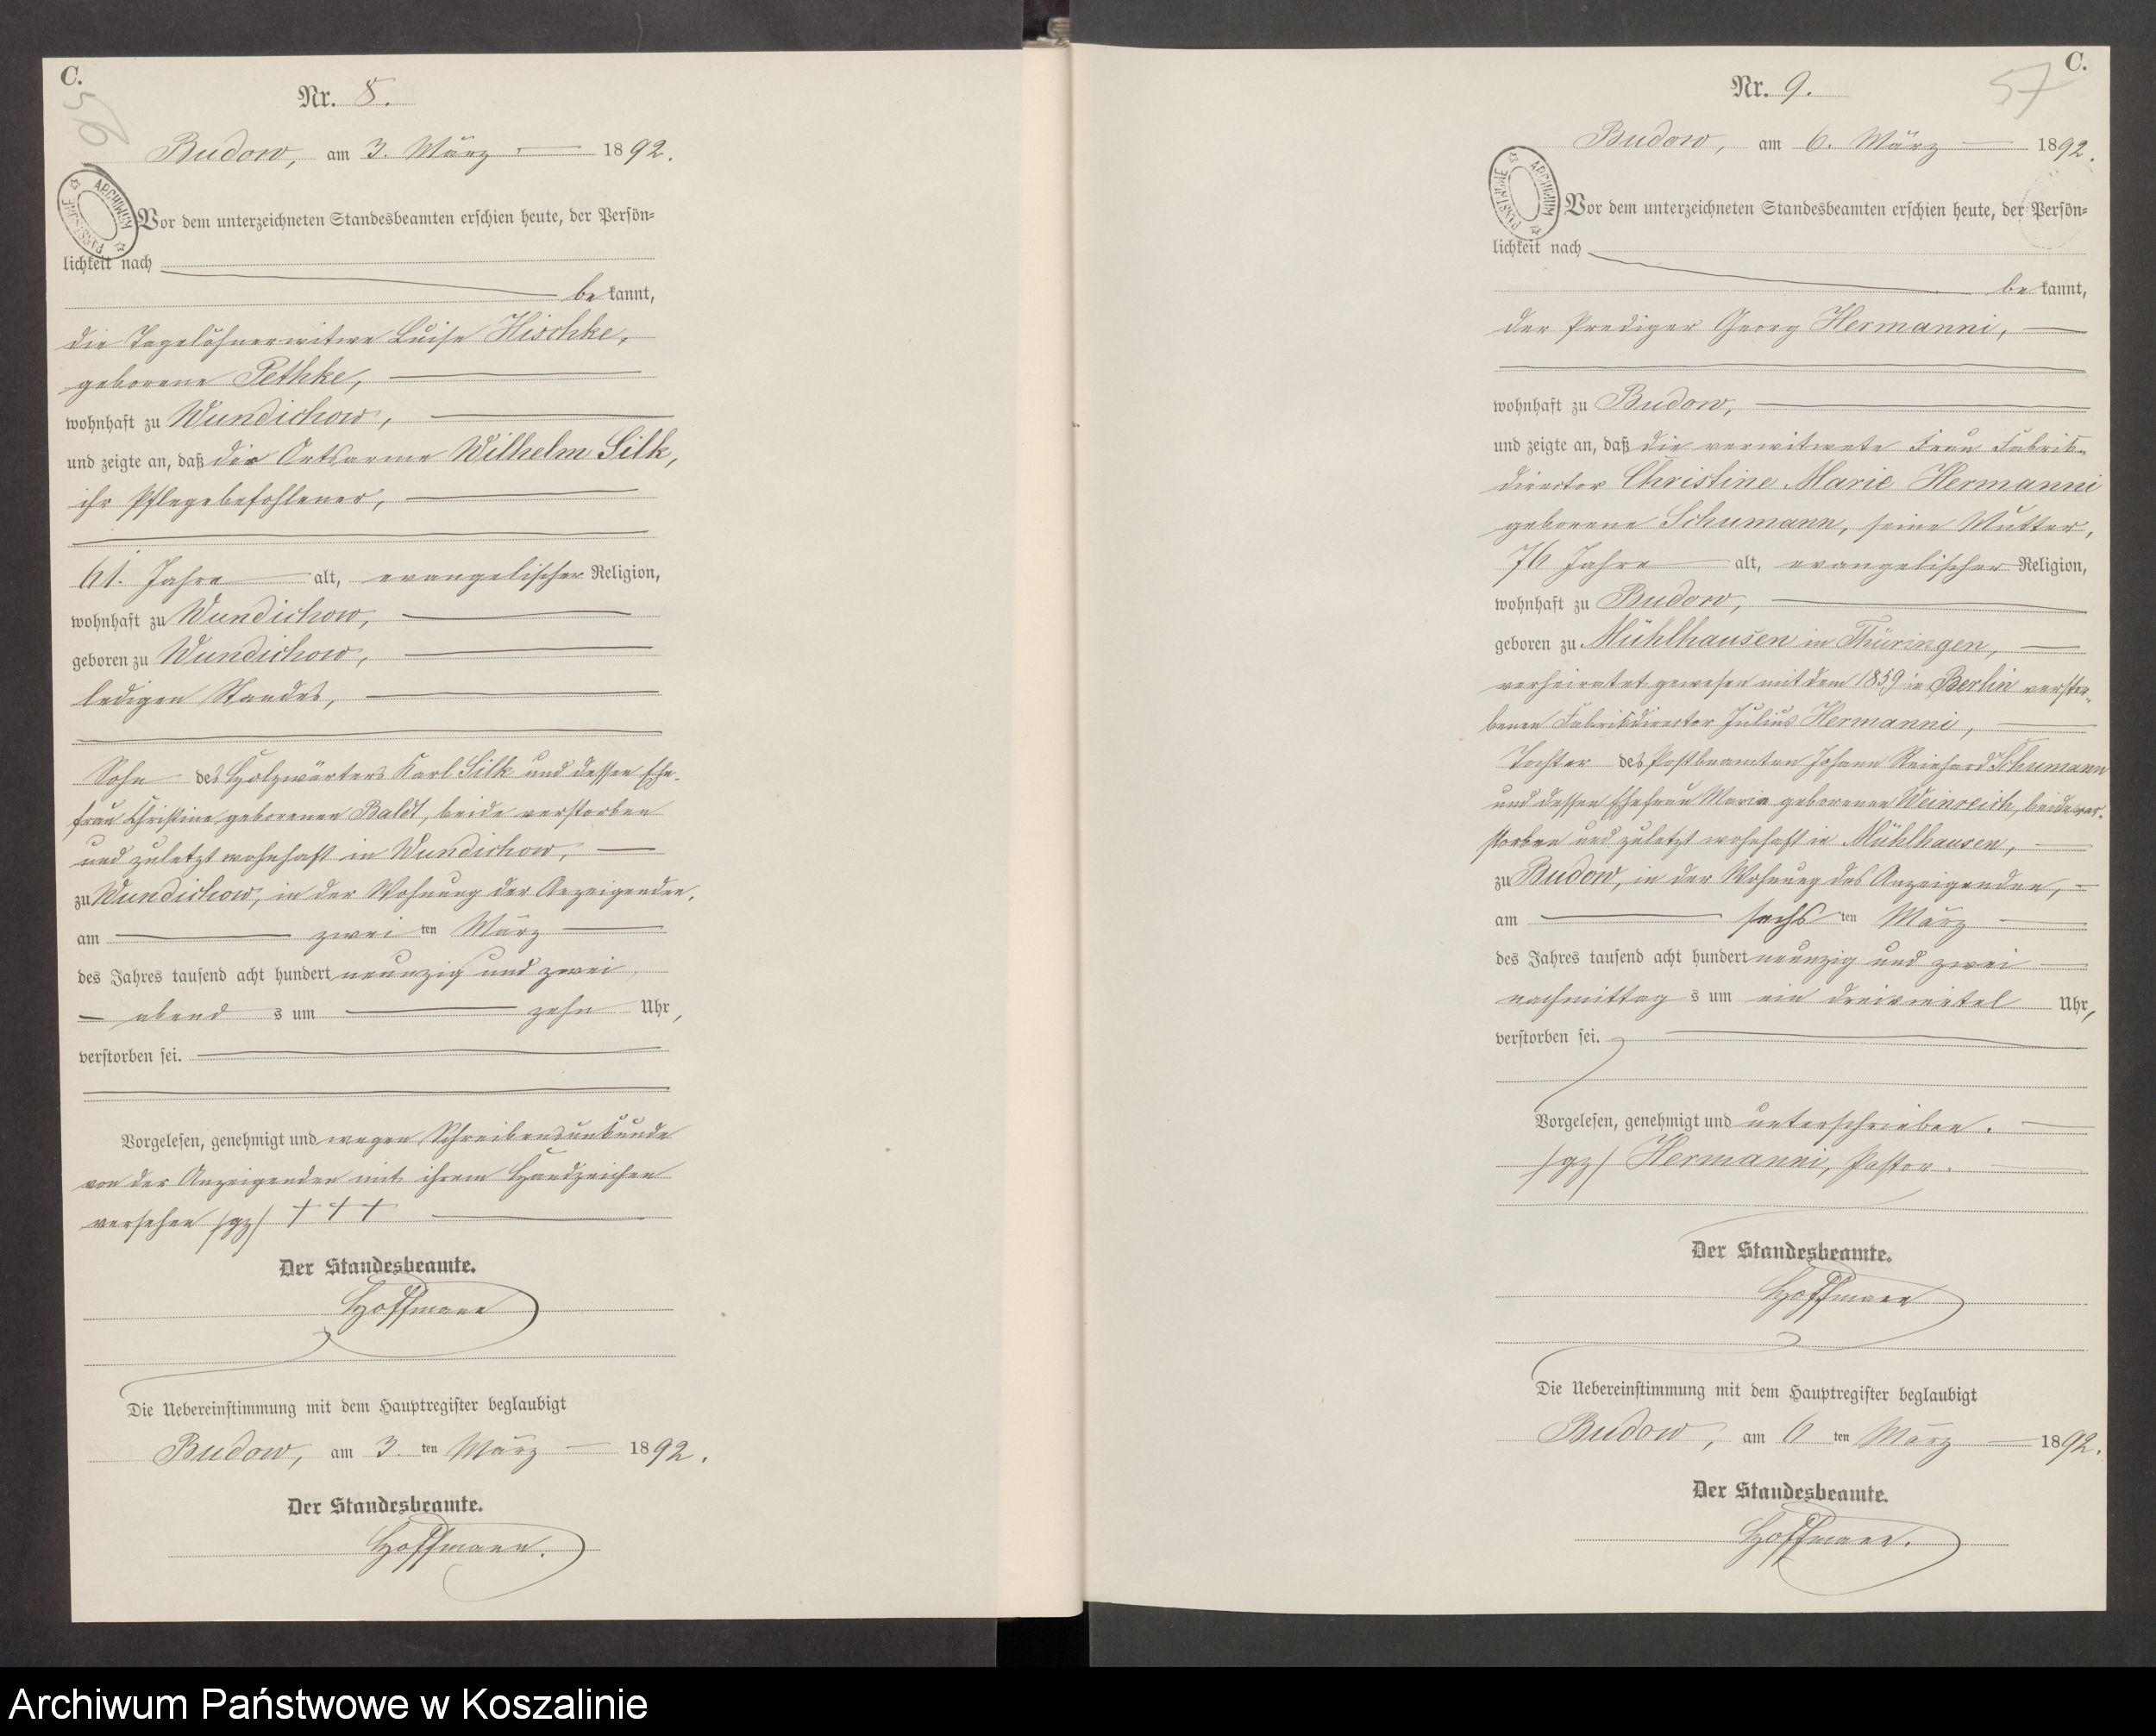 C.
56
Nr. 8.
Budow, am 3. März 1892.
ARCHIWUM PAŃSTWOWE
Vor dem unterzeichneten Standesbeamten erschien heute, der Persön=
lichkeit nach
bekannt,
die Tagelöhnerwitwe Luise Hischke,
geborene Pethke,
wohnhaft zu Wundichow,
und zeigte an, daß der Ortsarme Wilhelm Silk,
ihr Pflegebefohlener,
61. Jahre alt, evangelischer Religion,
wohnhaft zu Wundichow,
geboren zu Wundichow,
ledigen Standes,
Sohn des Holzwärters Karl Silk und dessen Ehe-
frau Christine geborenen Baldt, beide verstorben
und zuletzt wohnhaft in Wundichow,
zu Wundichow, in der Wohnung der Anzeigenden,
am zwei ten März
des Jahres tausend acht hundert neunzig und zwei
abend s um zehn Uhr,
verstorben sei.
Vorgelesen, genehmigt und wegen Schreibensunkunde
von der Anzeigenden mit ihrem Handzeichen
versehen /gz/ + + +
Der Standesbeamte.
Hoffmann
Die Uebereinstimmung mit dem Hauptregister beglaubigt
Budow, am 3. ten März 1892.
Der Standesbeamte.
Hoffmann.
C.
57
Nr. 9.
Budow, am 6. März 1892.
ARCHIWUM PAŃSTWOWE
Vor dem unterzeichneten Standesbeamten erschien heute, der Persön=
lichkeit nach
bekannt,
der Prediger Georg Hermanni,
wohnhaft zu Budow,
und zeigte an, daß die verwitwete Frau Fabrik=
director Christine Marie Hermanni
geborene Schumann, seine Mutter,
76 Jahre alt, evangelischer Religion,
wohnhaft zu Budow,
geboren zu Mühlhausen in Thüringen,
verheiratet gewesen mit dem 1859 in Berlin verstor-
benen Fabrikdirector Julius Hermanni,
Tochter des Postbeamten Johann Reinhard Schumann
und dessen Ehefrau Marie geborenen Weinreich, beide ver-
storben und zuletzt wohnhaft in Mühlhausen,
zu Budow, in der Wohnung des Anzeigenden,
am sechs ten März
des Jahres tausend acht hundert neunzig und zwei
nachmittag s um ein dreiviertel Uhr,
verstorben sei.
Vorgelesen, genehmigt und unterschrieben.
/gz/ Hermanni, Pastor.
Der Standesbeamte.
Hoffmann
Die Uebereinstimmung mit dem Hauptregister beglaubigt
Budow, am 6 ten März 1892.
Der Standesbeamte.
Hoffmann.
Archiwum Państwowe w Koszalinie